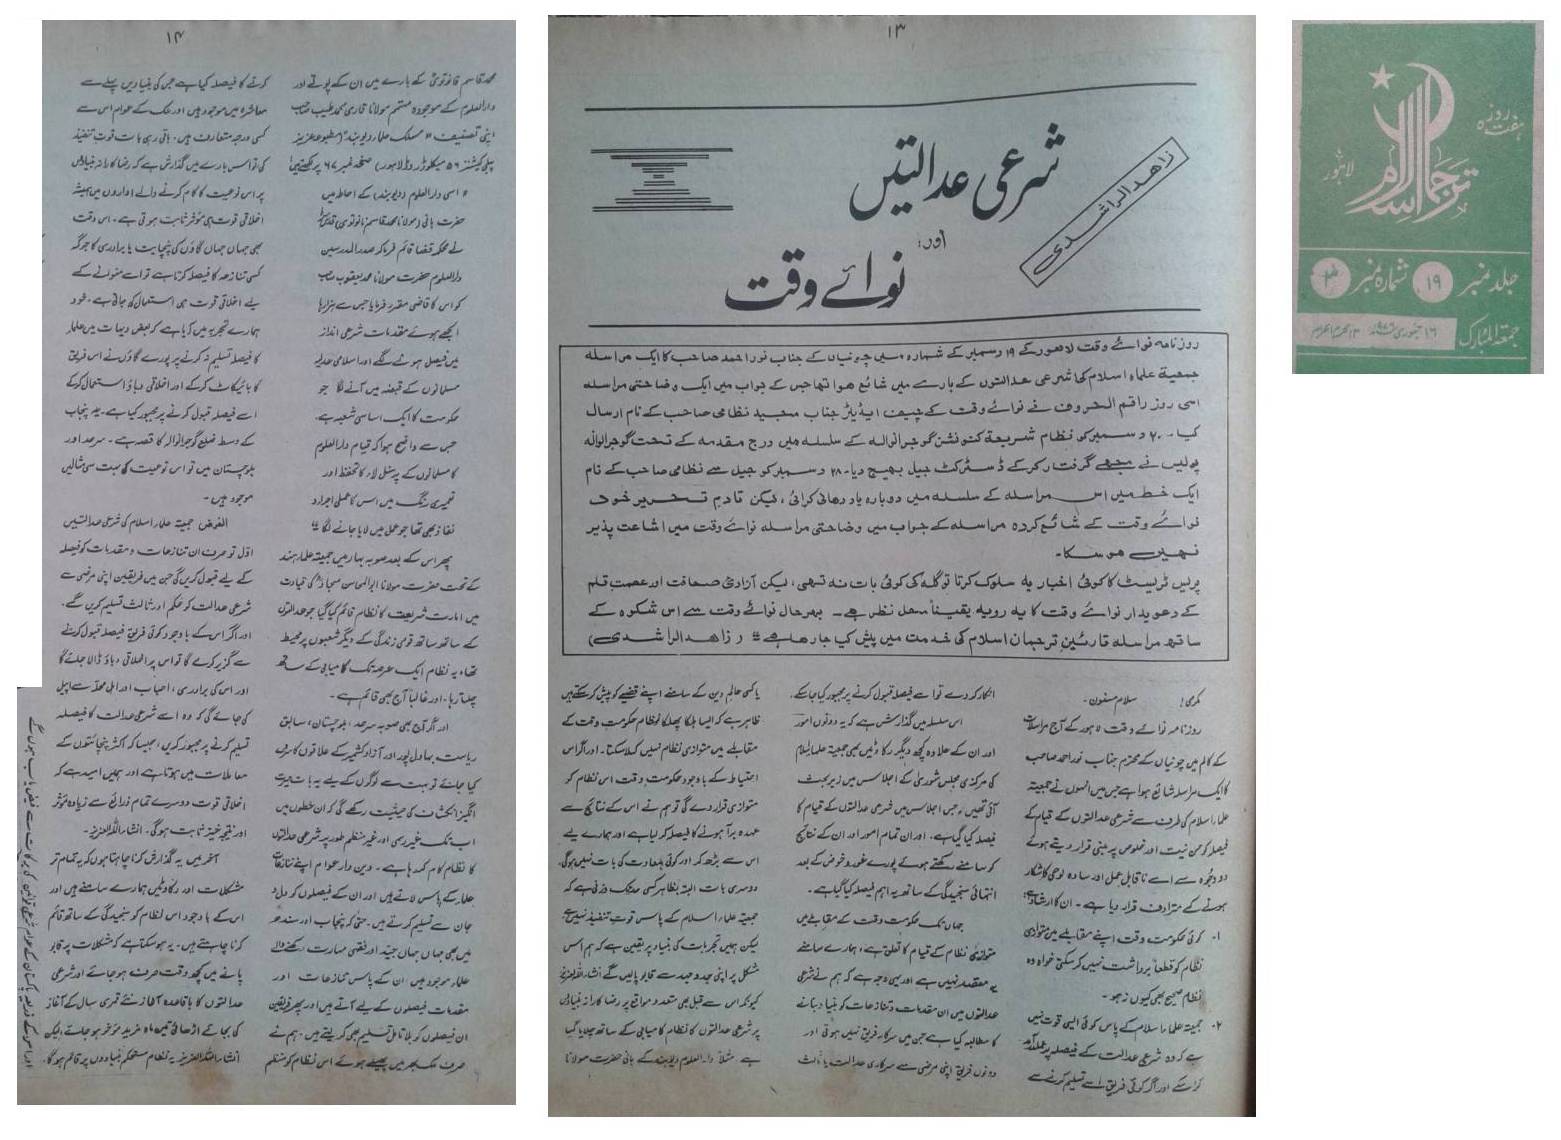 ہفت روزہ
ترجمان اسلام
لاہور
جلد نمبر ۱۹ شمارہ نمبر ۳
جمعۃ المبارک ۱۶ جنوری ۱۹۷۶ ۱۳ محرم الحرام
۱۳
شرعی عدالتیں
اور:
نوائے وقت
زاھدالراشدی
روزنامہ نوائے وقت لاھور کے ۱۹ دسمبر کے شمارہ میں چونیاں کے جناب نور احمد صاحب کا ایک مراسلہ
جمعیۃ علماء اسلام کی شرعی عدالتوں کے بارے میں شائع ھوا تھا جس کے جواب میں ایک وضاحتی مراسلہ
اسی روز راقم الحروف نے نوائے وقت کے چیف ایڈیٹر جناب مجید نظامی صاحب کے نام ارسال
کیا۔ ۲۰ دسمبر کو نظام شریعۃ کنونشن گوجرانوالہ کے سلسلہ میں درج مقدمہ کے تحت گوجرانوالہ
پولیس نے مجھے گرفتار کرکے ڈسٹرکٹ جیل بھیج دیا۔ ۲۸ دسمبر کو جیل سے نظامی صاحب کے نام
ایک خط میں اس مراسلہ کے سلسلہ میں دوبارہ یاد دھانی کرائی، لیکن تادم تحریر خود
نوائے وقت کے شائع کردہ مراسلہ کے جواب میں وضاحتی مراسلہ نوائے وقت میں اشاعت پذیر
نہیں ھو سکا۔
پریس ٹرسٹ کا کوئی اخبار یہ سلوک کرتا تو گلہ کی کوئی بات نہ تھی، لیکن آزادئ صحافت اور عصمتِ قلم
کے دعویدار نوائے وقت کا یہ رویہ یقیناً محل نظر ھے۔ بہرحال نوائے وقت سے اس شکوہ کے
ساتھ مراسلہ قارئین ترجمان اسلام کی خدمت میں پیش کیا جا رھا ھے ( زاھدالراشدی)
مکرمی! سلام مسنون۔
روزنامہ نوائے وقت لاہور کے آج مراسلات
کے کالم میں چونیاں کے محترم جناب نور احمد صاحب
کا ایک مراسلہ شائع ہوا ہے جس میں انہوں نے جمعیۃ
علماء اسلام کی طرف سے شرعی عدالتوں کے قیام کے
فیصلہ کو حسن نیت اور خلوص پر مبنی قرار دیتے ہوئے
دو وجوہ سے اسے ناقابل عمل اور سادہ لوحی کا شکار
ہونے کے مترادف قرار دیا ہے۔ ان کا ارشاد ہے:
۱۔ کوئی حکومت وقت اپنے مقابلے میں متوازی
نظام کو قطعاً برداشت نہیں کر سکتی خواہ وہ
نظام صحیح بھی کیوں نہ ہو۔
۲۔ جمعیۃ علماء اسلام کے پاس کوئی ایسی قوت نہیں
ہے کہ وہ شرعی عدالت کے فیصلہ پر عملدرآمد
کرا سکے اور اگر کوئی فریق اسے تسلیم کرنے سے
انکار کر دے تو اسے فیصلہ قبول کرنے پر مجبور کیا جا سکے۔
اس سلسلہ میں گذارش ہے کہ یہ دونوں امور
اور ان کے علاوہ کچھ دیگر رکاوٹیں بھی جمعیۃ علماء اسلام
کی مرکزی مجلس شوریٰ کے اجلاس میں زیر بحث
آئی تھیں، جس اجلاس میں شرعی عدالتوں کے قیام کا
فیصلہ کیا گیا ہے۔ اور ان تمام امور اور ان کے نتائج
کو سامنے رکھتے ہوئے پورے غور و خوض کے بعد
انتہائی سنجیدگی کے ساتھ یہ اہم فیصلہ کیا گیا ہے۔
جہاں تک حکومت وقت کے مقابلے میں
متوازی نظام کے قیام کا تعلق ہے، ہمارے سامنے
یہ مقصد نہیں ہے اور یہی وجہ ہے کہ ہم نے شرعی
عدالتوں میں ان مقدمات و تنازعات کو بنیاد بنانے
کا مطالبہ کیا ہے جن میں سرکار فریق نہیں ہوتی اور
دونوں فریق اپنی مرضی سے سرکاری عدالت یا ثالث
یا کسی عالم دین کے سامنے اپنے قضیے کو پیش کر سکتے ہیں
ظاہر ہے کہ ایسا ہلکا پھلکا نظام حکومت وقت کے
مقابلے میں متوازی نظام نہیں کہلا سکتا۔ اور اگر اس
احتیاط کے باوجود حکومت وقت اس نظام کو
متوازی قرار دے گی تو ہم نے اس کے نتائج سے
عہدہ برآ ہونے کا فیصلہ کر لیا ہے اور ہمارے لیے
اس سے بڑھ کر اور کوئی سعادت کی بات نہیں ہوگی۔
دوسری بات البتہ بظاہر کسی حد تک وزنی ہے کہ
جمعیۃ علماء اسلام کے پاس قوت تنفیذ نہیں ہے،
لیکن ہمیں تجربات کی بنیاد پر یقین ہے کہ ہم اس
مشکل پر اپنی جدوجہد سے قابو پا لیں گے انشاء اللہ العزیز
کیونکہ اس سے قبل بھی متعدد مواقع پر رضا کارانہ بنیادوں
پر شرعی عدالتوں کا نظام کامیابی کے ساتھ چلایا گیا
ہے مثلاً دارالعلوم دیوبند کے بانی حضرت مولانا
۱۴
محمد قاسم نانوتویؒ کے بارے میں ان کے پوتے اور
دارالعلوم کے موجودہ مہتمم مولانا قاری محمد طیب صاحب
اپنی تصنیف "مسلک علماء دیوبند" (مطبوعہ عزیز
پبلی کیشنز ۵۶ میکلوڈ روڈ لاہور) صفحہ نمبر ۶۷ پر لکھتے ہیں:
"اسی دارالعلوم (دیوبند) کے احاطہ میں
حضرت بانی (مولانا محمد قاسم نانوتوی) قدس سرہ
نے محکمہ قضا قائم فرما کر صدر المدرسین
دارالعلوم حضرت مولانا محمد یعقوب صاحب
کو اس کا قاضی مقرر فرمایا جس سے ہزارہا
الجھے ہوئے مقدمات شرعی انداز
میں فیصل ہونے لگے اور اسلامی عدلیہ
مسلمانوں کے قبضہ میں آنے لگا جو
حکومت کا ایک اساسی شعبہ ہے۔
جس سے واضح ہوا کہ قیام دارالعلوم
کا مسلمانوں کے پرسنل لاء کا تحفظ اور
تعمیری رنگ میں اس کا عملی اجراء و
نفاذ بھی تھا جو عمل میں لایا جانے لگا"
پھر اس کے بعد صوبہ بہار میں جمعیۃ علماء ہند
کے تحت حضرت مولانا ابوالمحاسن سجادؒ کی قیادت
میں امارت شریعت کا نظام قائم کیا گیا جو عدالتوں
کے ساتھ ساتھ قومی زندگی کے دیگر شعبوں پر محیط
تھا، یہ نظام ایک عرصہ تک کامیابی کے ساتھ
چلتا رہا۔ اور غالباً آج بھی قائم ہے۔
اور اگر آج بھی صوبہ سرحد، بلوچستان، سابق
ریاست بہاول پور اور آزاد کشمیر کے علاقوں کا سروے
کیا جائے تو بہت سے لوگوں کے لیے یہ بات حیرت
انگیز انکشاف کی حیثیت رکھے گی کہ ان خطوں میں
اب تک غیر رسمی اور غیر منظم طور پر شرعی عدالتوں
کا نظام کام کر رہا ہے۔ دین دار عوام اپنے تنازعات
علماء کے پاس لاتے ہیں اور ان کے فیصلوں کو دل و
جان سے تسلیم کرتے ہیں۔ حتیٰ کہ پنجاب اور سندھ
میں بھی جہاں جہاں جید اور فقہی مہارت رکھنے والے
علماء موجود ہیں ان کے پاس تنازعات اور
مقدمات فیصلوں کے لیے آتے ہیں اور پھر فریقین
ان فیصلوں کو بلا تامل تسلیم بھی کر لیتے ہیں۔ ہم نے
صرف ملک بھر میں پھیلے ہوئے اس نظام کو منظم
کرنے کا فیصلہ کیا ہے جس کی بنیادیں پہلے سے
معاشرہ میں موجود ہیں اور ملک کے عوام اس سے
کسی درجہ متعارف ہیں۔ باقی رہی بات قوت تنفیذ
کی تو اس بارے میں گذارش ہے کہ رضا کارانہ بنیادوں
پر اس نوعیت کا کام کرنے والے اداروں میں ہمیشہ
اخلاقی قوت ہی مؤثر ثابت ہوتی ہے۔ اس وقت
بھی جہاں جہاں گاؤں کی پنچایت یا برادری کا جرگہ
کسی تنازعہ کا فیصلہ کرتا ہے تو اسے منوانے کے
لیے اخلاقی قوت ہی استعمال کی جاتی ہے۔ خود
ہمارے تجربہ میں کہ بعض دیہات میں علماء
کا فیصلہ تسلیم نہ کرنے پر پورے گاؤں نے اس فریق
کا بائیکاٹ کرکے اور اخلاقی دباؤ استعمال کرکے
اسے فیصلہ قبول کرنے پر مجبور کیا ہے۔ یہ پنجاب
کے وسط ضلع گوجرانوالہ کا قصہ ہے۔ سرحد اور
بلوچستان میں تو اس نوعیت کی بہت سی مثالیں
موجود ہیں۔
الغرض جمعیۃ علماء اسلام کی شرعی عدالتیں
اول تو صرف ان تنازعات و مقدمات کو فیصلہ
کے لیے قبول کریں گی جن میں فریقین اپنی مرضی سے
شرعی عدالت کو حکم اور ثالث تسلیم کریں گے۔
اور اگر اس کے باوجود کوئی فریق فیصلہ قبول کرنے
سے گریز کرے گا تو اس پر اخلاقی دباؤ ڈالا جائے گا
اور اس کی برادری، احباب اور اہل محلہ سے اپیل
کی جائے گی کہ وہ اسے شرعی عدالت کا فیصلہ
تسلیم کرنے پر مجبور کریں، جیسا کہ اکثر پنچائتوں کے
معاملات میں ہوتا ہے اور ہمیں امید ہے کہ
اخلاقی قوت دوسرے تمام ذرائع سے زیادہ مؤثر
اور نتیجہ خیز ثابت ہوگی۔ انشاء اللہ العزیز۔
آخر میں یہ گذارش کرنا چاہتا ہوں کہ یہ تمام تر
مشکلات اور رکاوٹیں ہمارے سامنے ہیں اور
اس کے باوجود اس نظام کو سنجیدگی کے ساتھ قائم
کرنا چاہتے ہیں۔ یہ ہو سکتا ہے کہ مشکلات پر قابو
پانے میں کچھ وقت صرف ہو جائے اور شرعی
عدالتوں کا باقاعدہ آغاز نئے قمری سال کے آغاز
کی بجائے اڑھائی تین ماہ مزید مؤخر ہو جائے، لیکن
انشاء اللہ العزیز یہ نظام مستحکم بنیادوں پر قائم ہوگا۔
اور اس کے ذریعہ پاکستان کے عوام شرعی قوانین کی برکات سے فیض یاب ہوں گے